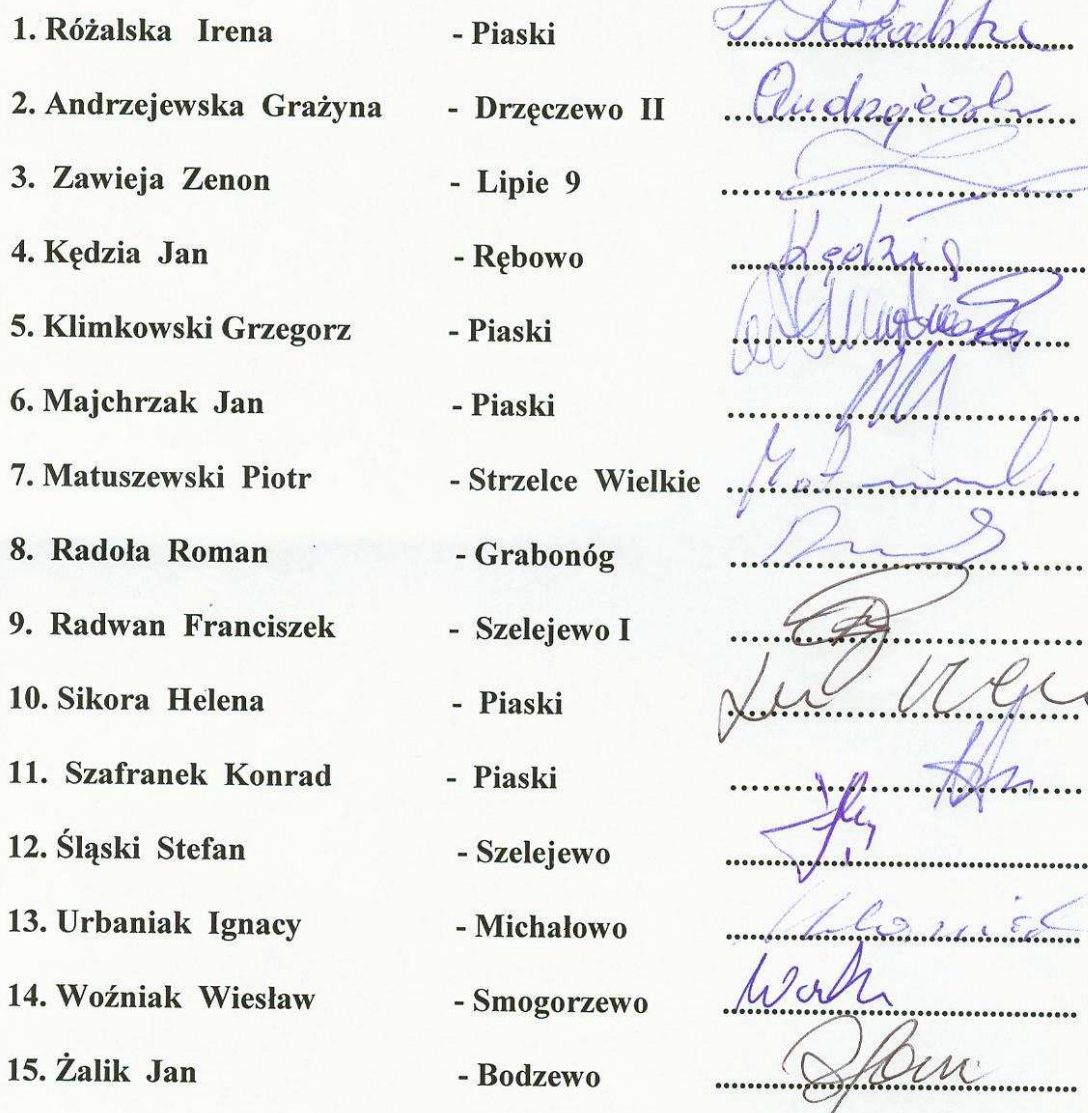 1. Różalska Irena - Piaski
2. Andrzejewska Grażyna - Drzęczewo II
3. Zawieja Zenon - Lipie 9
4. Kędzia Jan - Rębowo Kędzia
5. Klimkowski Grzegorz - Piaski
6. Majchrzak Jan - Piaski
7. Matuszewski Piotr - Strzelce Wielkie
8. Radoła Roman - Grabonóg
9. Radwan Franciszek - Szelejewo I
10. Sikora Helena - Piaski
11. Szafranek Konrad - Piaski
12. Śląski Stefan - Szelejewo
13. Urbaniak Ignacy - Michałowo
14. Woźniak Wiesław - Smogorzewo
15. Żalik Jan - Bodzewo